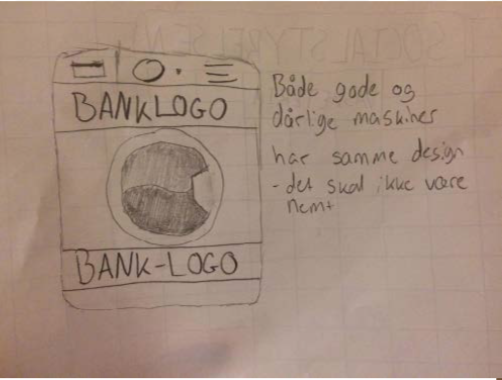 SOCIALSTYRELSEN
BANKLOGO
BANK-LOGO
Både gode og
dårlige maskiner
har samme design
- det skal ikke være
nemt